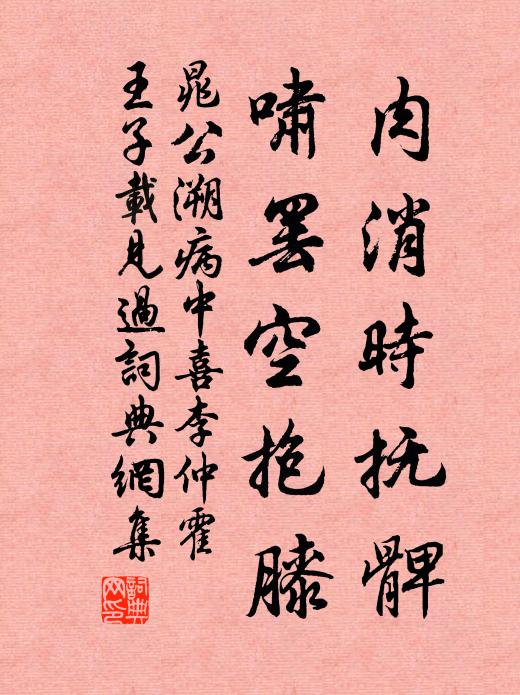 肉消時抚髀
啸罢空抱膝
晁公溯病中喜李仲霍
王子載見過詞典網集
詞典网印